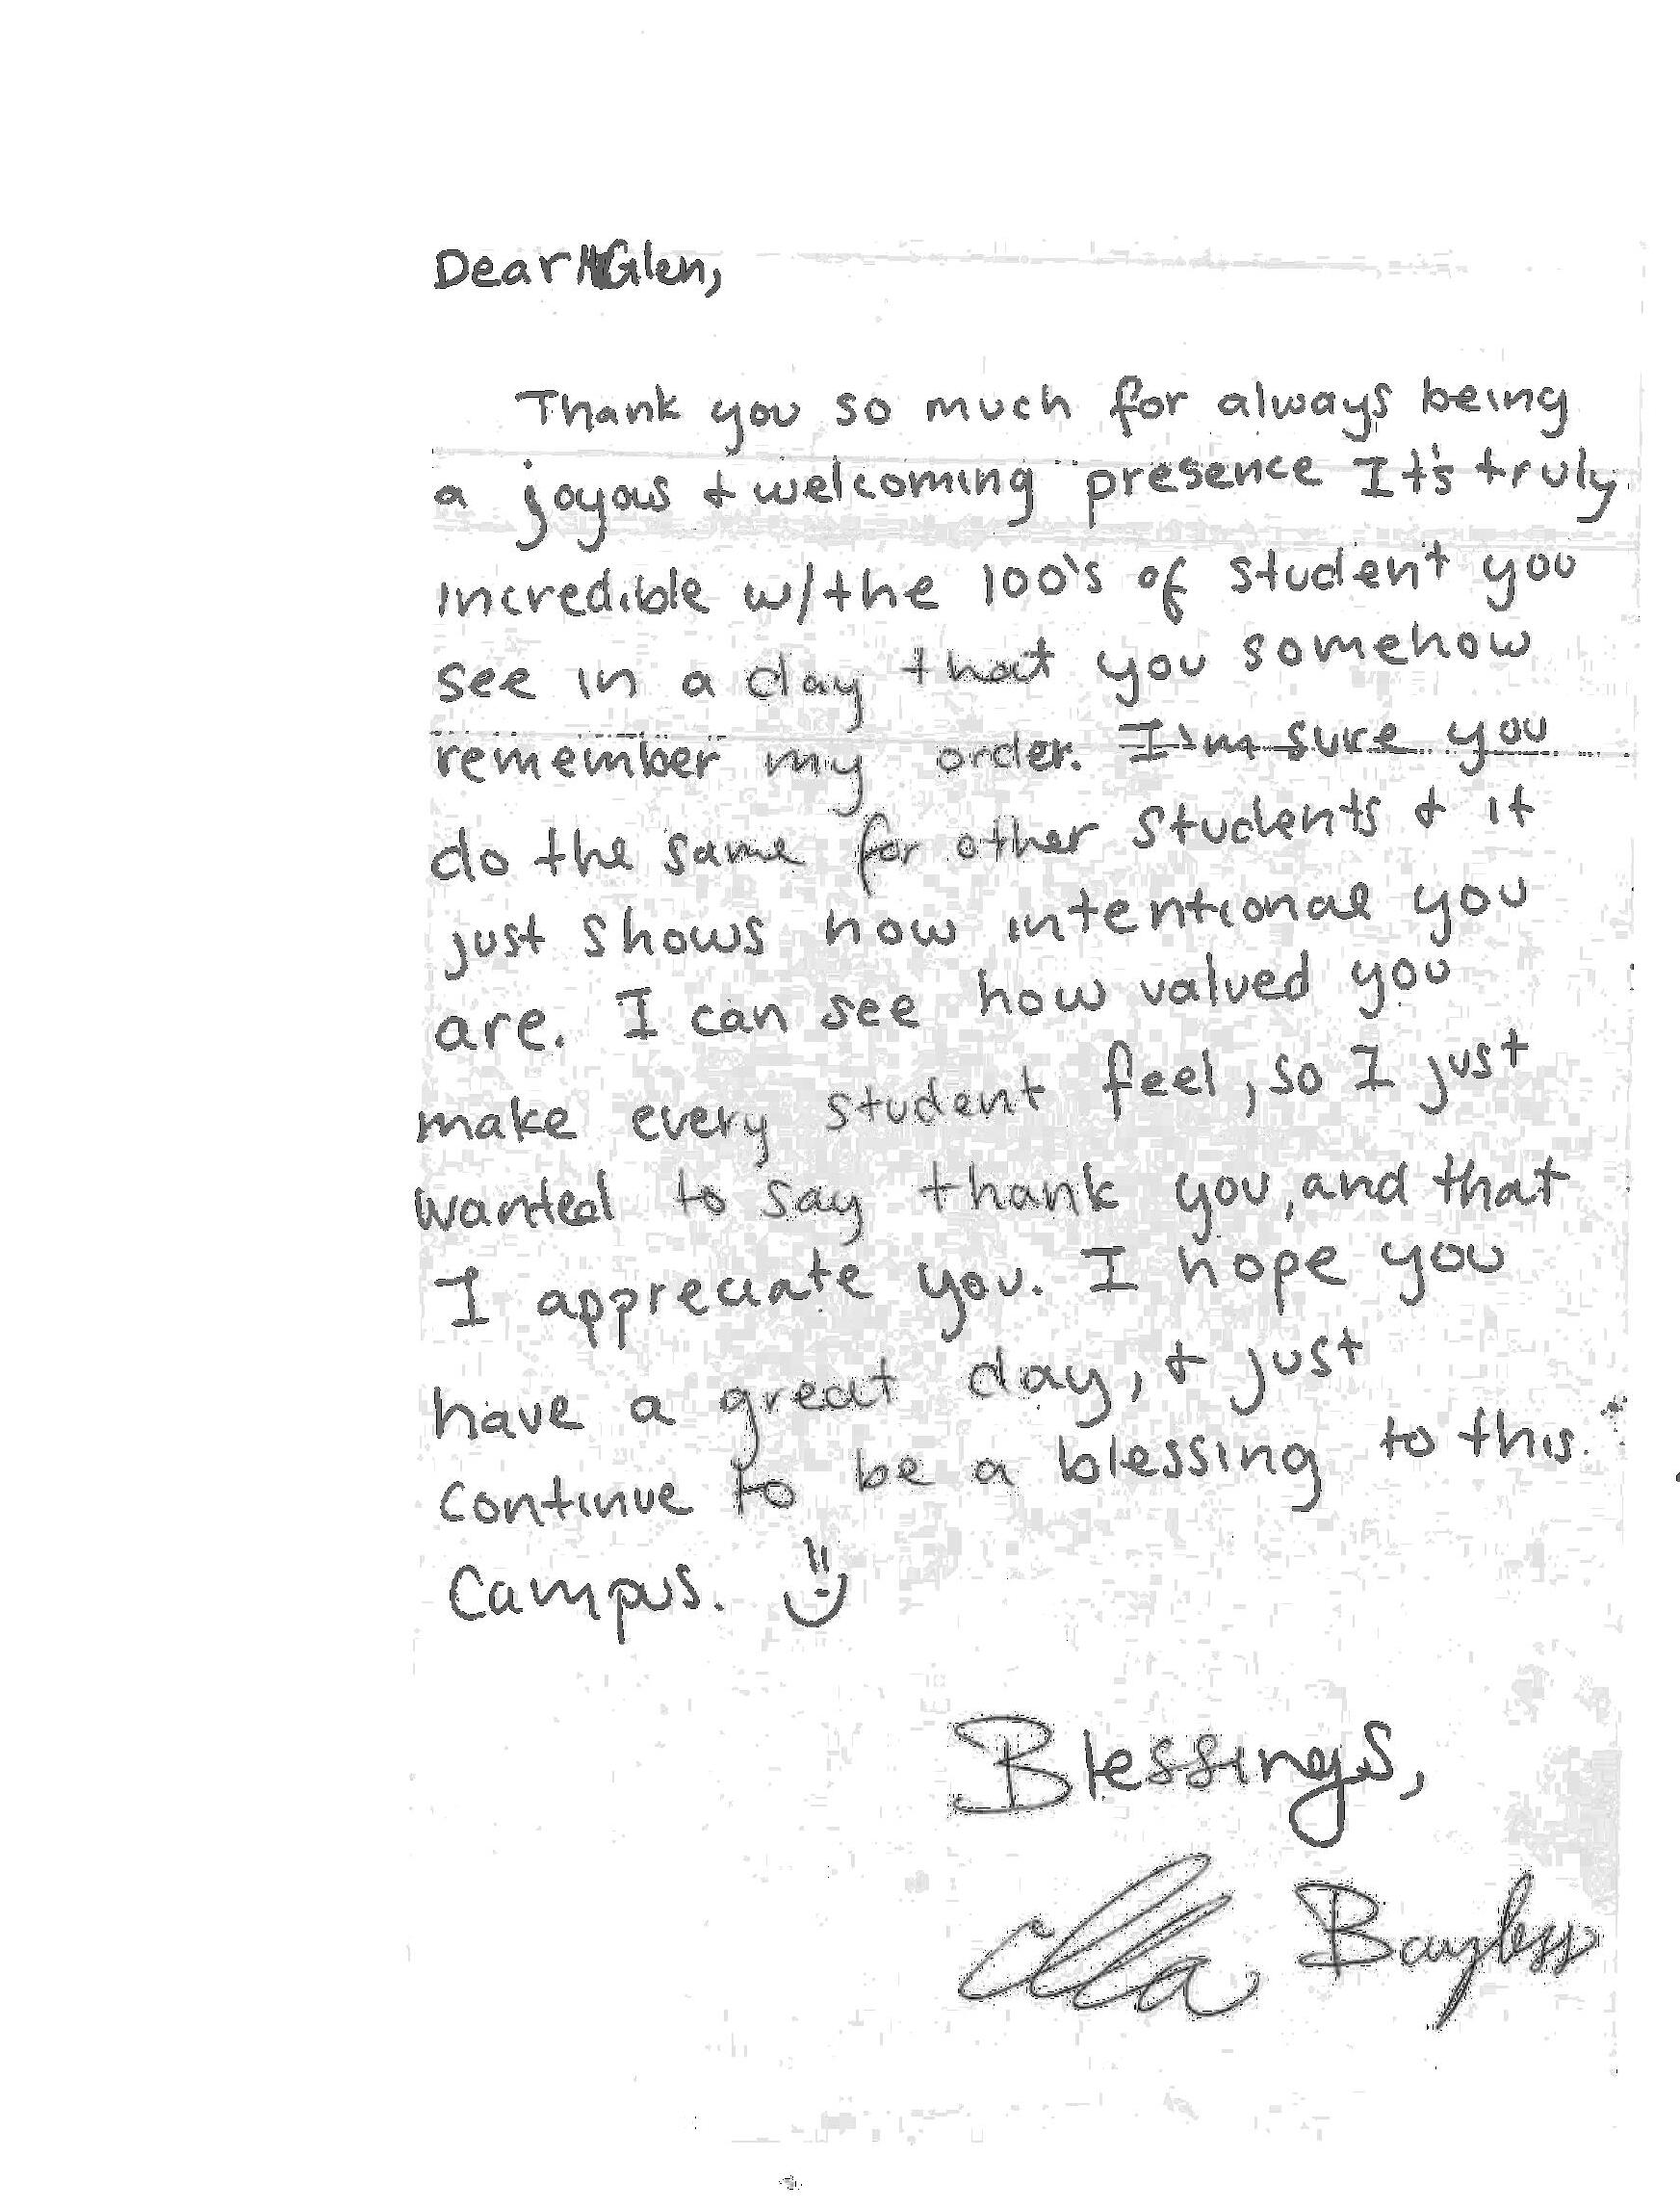 Dear Glen,
Thank you so much for always being
a joyous & welcoming presence It's truly
incredible w/the 100's of student you
see in a day that you somehow
remember my order. I'm sure you
do the same for other students & it
just shows how intentional you
are. I can see how valued you
make every student feel, so I just
wanted to say thank you, and that
I appreciate you. I hope you
have a great day, & just
continue to be a blessing to this
Campus.
Blessings,
Bayless